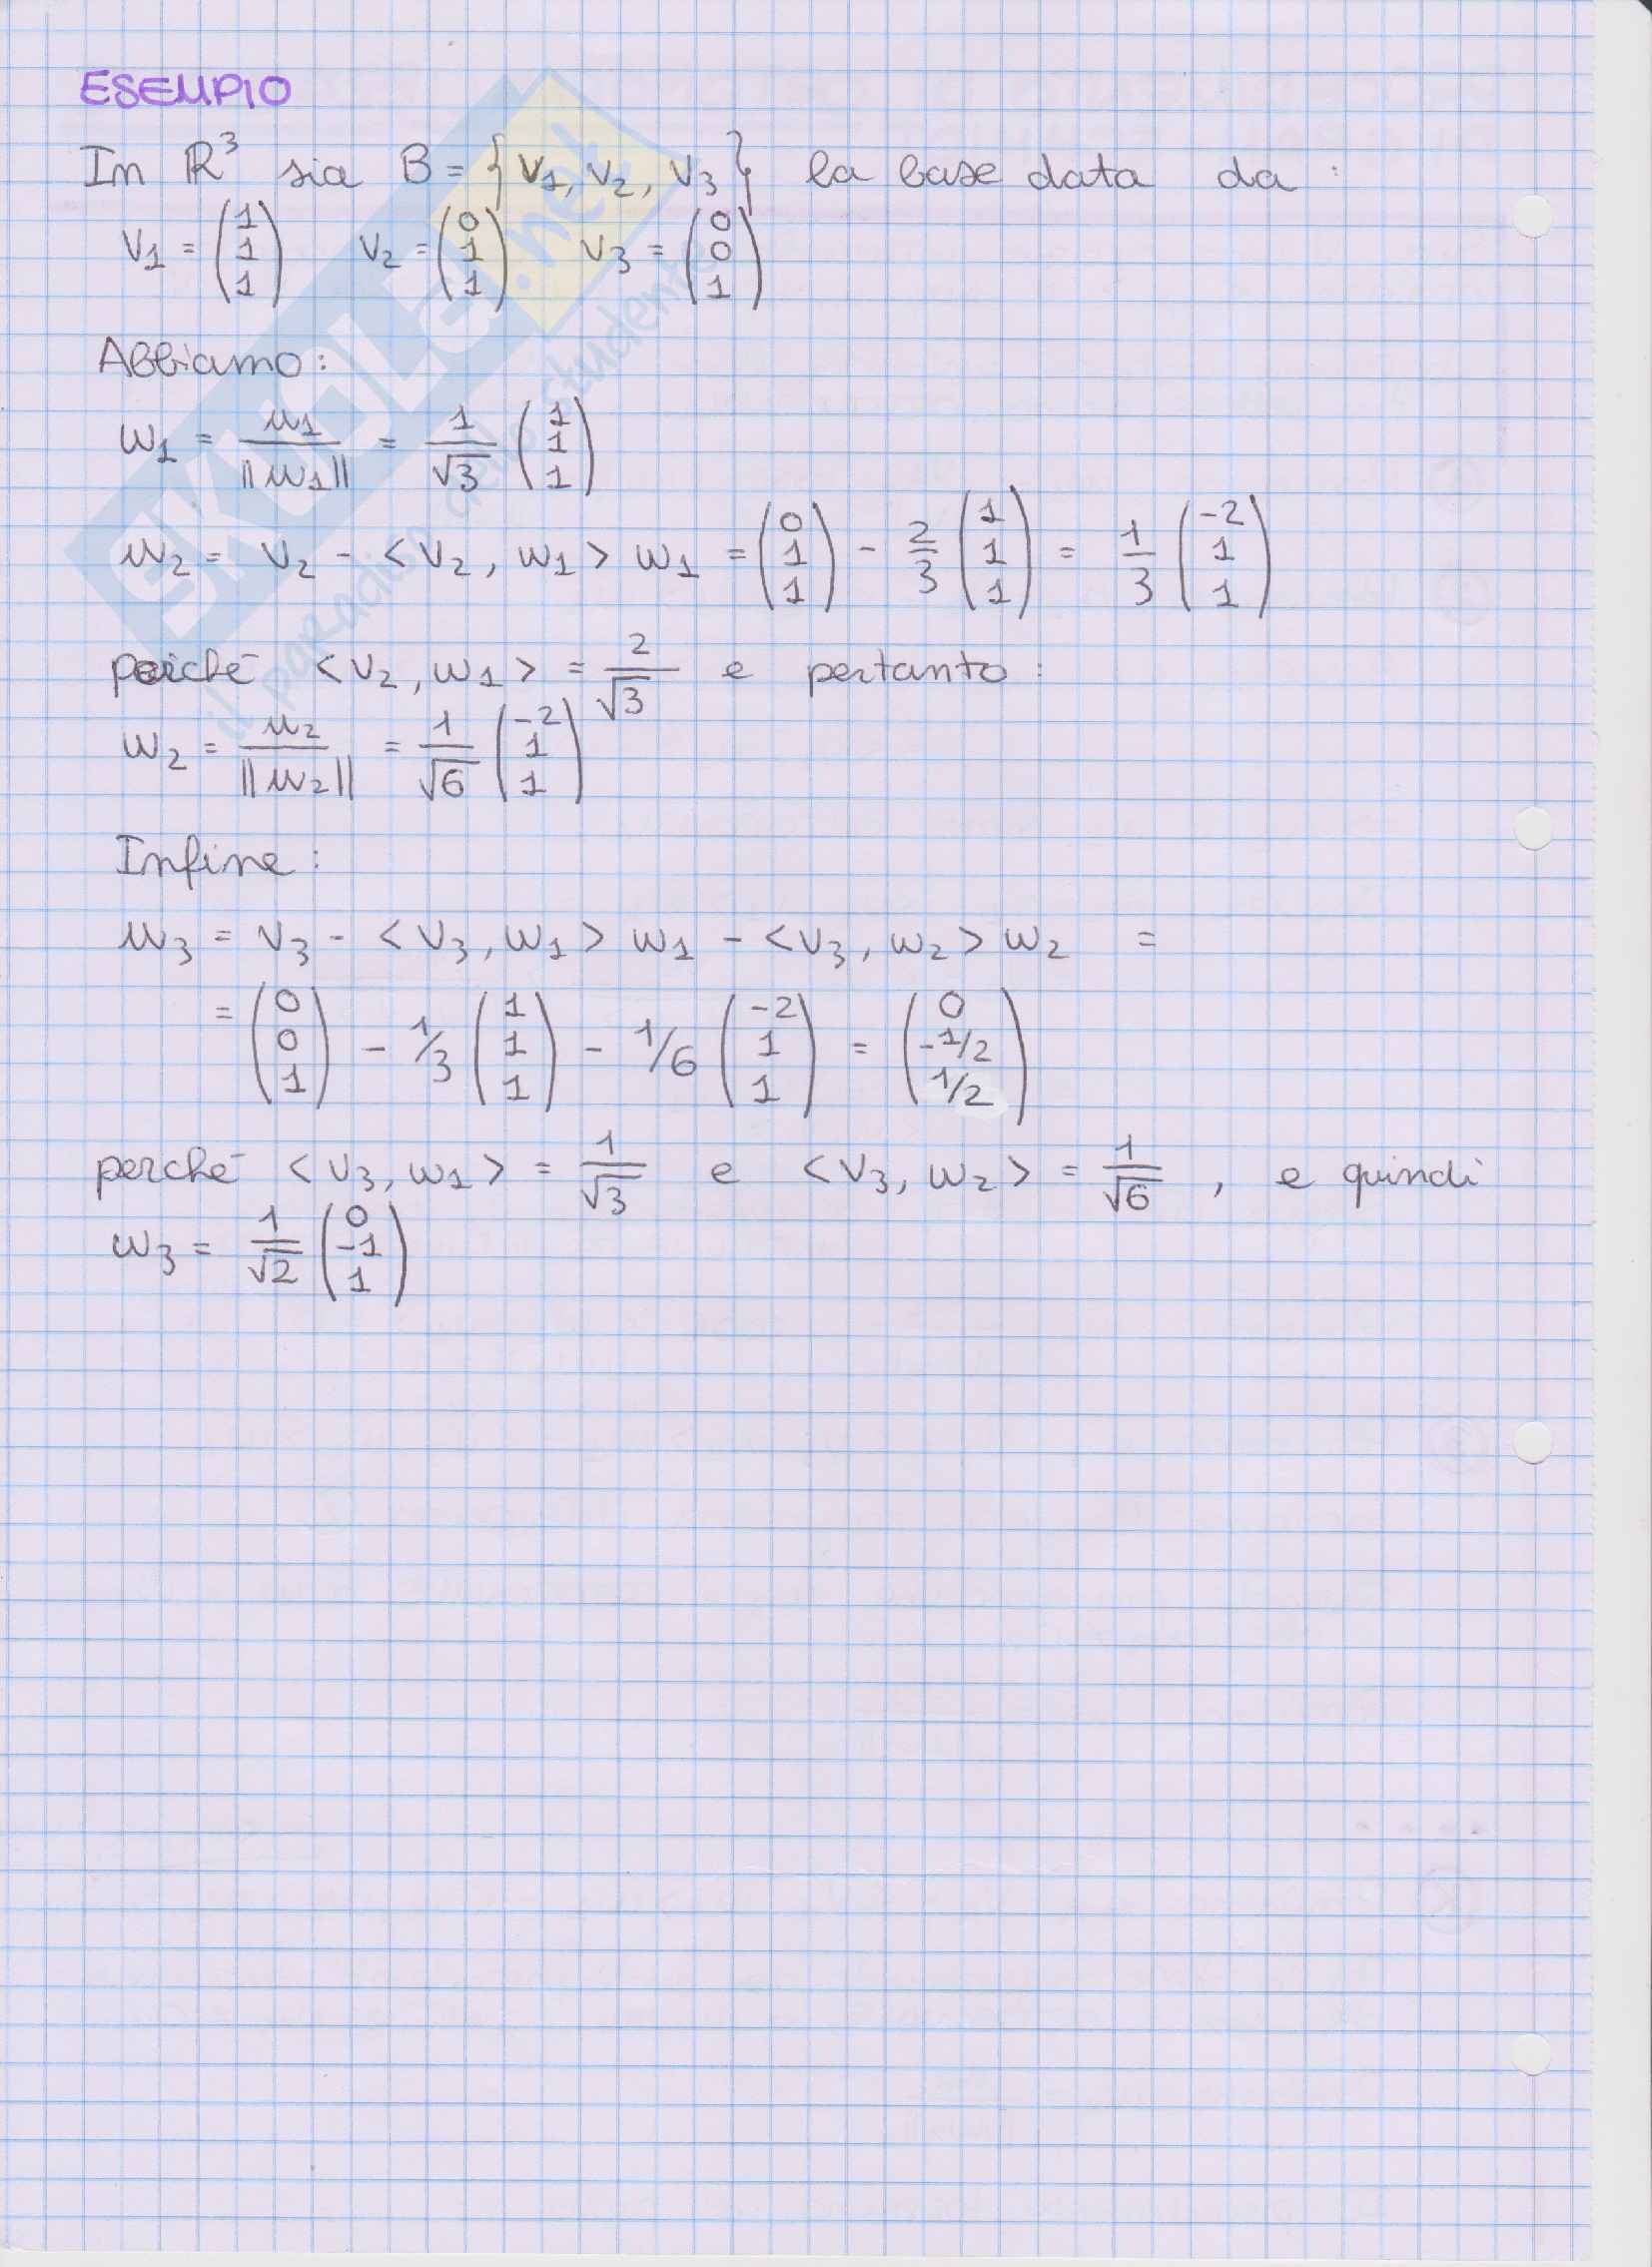 ESEMPIO
In ℝ³ sia B = {v₁, v₂, v₃} la base data da :
v₁ = (1 1 1) v₂ = (0 1 1) v₃ = (0 0 1)
Abbiamo:
w₁ = u₁/||u₁|| = 1/√3 (1 1 1)
u₂ = v₂ - <v₂, w₁> w₁ = (0 1 1) - 2/3 (1 1 1) = 1/3 (-2 1 1)
<v₂, w₁> = 2/√3 e pertanto :
w₂ = u₂/||u₂|| = 1/√6 (-2 1 1)
Infine :
u₃ = v₃ - <v₃, w₁> w₁ - <v₃, w₂> w₂ =
= (0 0 1) - 1/3 (1 1 1) - 1/6 (-2 1 1) = (0 -1/2 1/2)
perché <v₃, w₁> = 1/√3 e <v₃, w₂> = 1/√6 , e quindi
w₃ = 1/√2 (0 -1 1)
SKUOLA.net
il paradiso dello studente